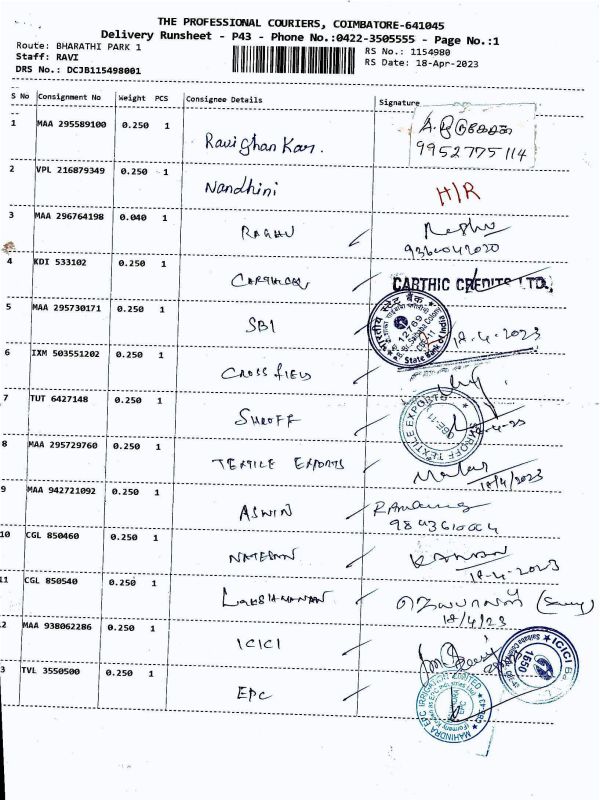 THE PROFESSIONAL COURIERS, COIMBATORE-641045
Delivery Runsheet - P43 - Phone No.:0422-3505555 - Page No.:1
Route: BHARATHI PARK 1
RS No.: 1154980
Staff: RAVI
RS Date: 18-Apr-2023
DRS No.: DCJB115498001
S No Consignment No Weight PCS Consignee Details Signature
1 MAA 295589100 0.250 1
9952775114
2 VPL 216879349 0.250 1 Nandhini H/R
3 MAA 296764198 0.040 1 RAGHU Raghu
9360042020
4 KDI 533102 0.250 1 CARTHIC CREDITS LTD.
5 MAA 295730171 0.250 1 SBI 18-4-2023
12769
State Bank of India
6 IXM 503551202 0.250 1 CROSSFIELD
7 TUT 6427148 0.250 1 SHROFF
SHROFF TEXTILE EXPORTS
8 MAA 295729760 0.250 1 TEXTILE EXPORTS
18/4/2023
9 MAA 942721092 0.250 1 ASWIN
9893610004
10 CGL 850460 0.250 1 NATESAN
18-4-2023
11 CGL 850540 0.250 1 LAKSHMANAN
18/4/23
2 MAA 938062286 0.250 1 ICICI
ICICI Ba
1650
3 TVL 3550500 0.250 1 EPC
MAHINDRA EPC IRRIGATION LIMITED